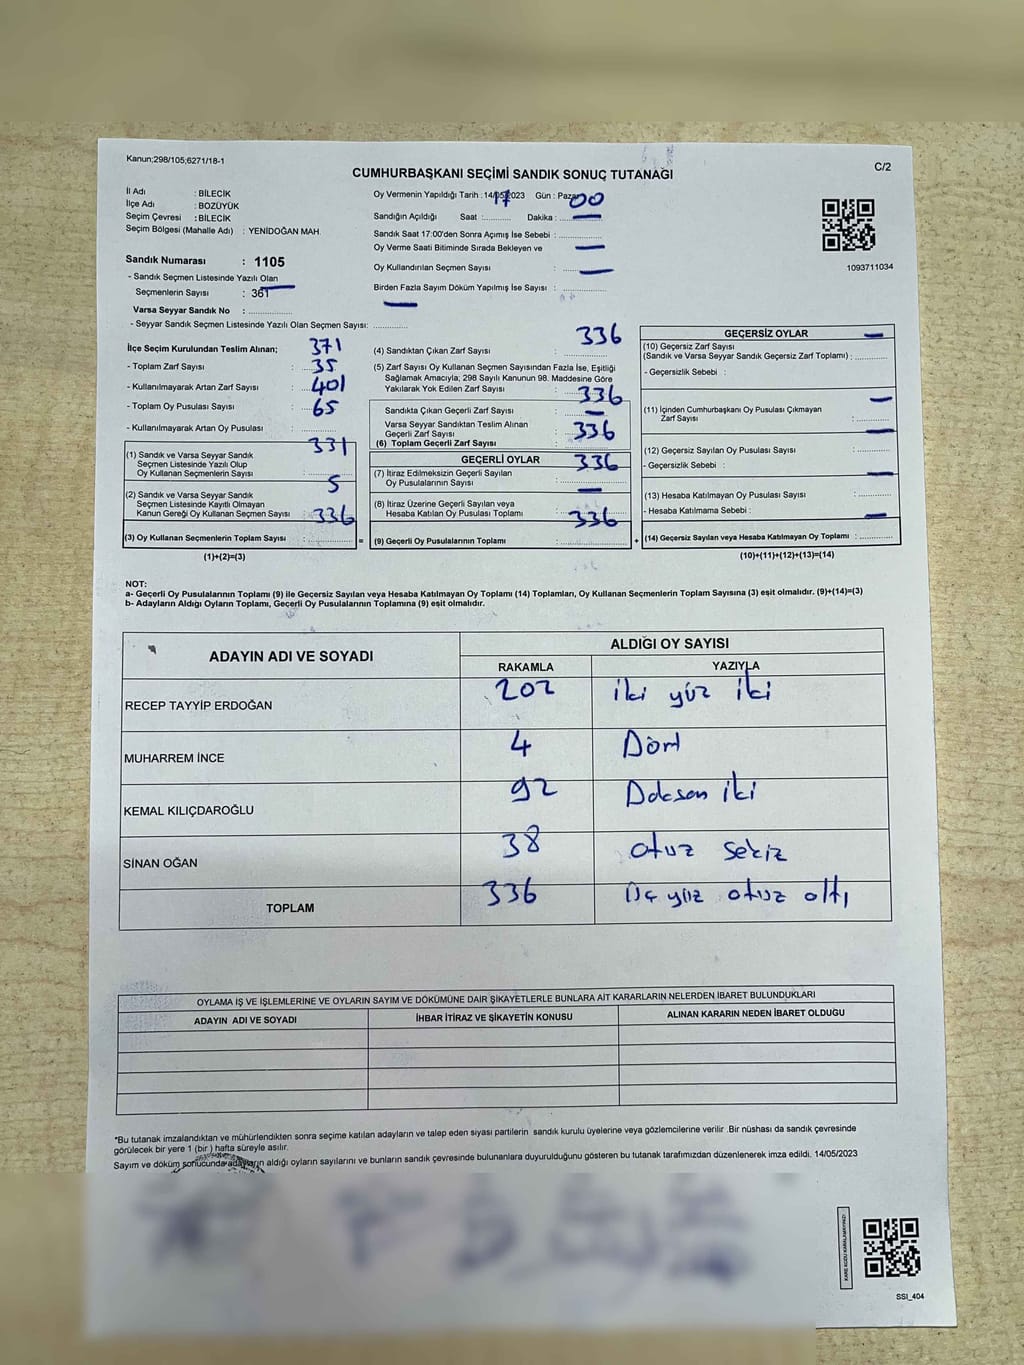 Kanun;298/105;6271/18-1
C/2
CUMHURBAŞKANI SEÇİMİ SANDIK SONUÇ TUTANAĞI
İl Adı : BİLECİK
İlçe Adı : BOZÜYÜK
Seçim Çevresi : BİLECİK
Seçim Bölgesi (Mahalle Adı) : YENİDOĞAN MAH.
Sandık Numarası : 1105
- Sandık Seçmen Listesinde Yazılı Olan
Seçmenlerin Sayısı : 361
Varsa Seyyar Sandık No : ..............
- Seyyar Sandık Seçmen Listesinde Yazılı Olan Seçmen Sayısı: ............
Oy Vermenin Yapıldığı Tarih : 14/05/2023 Gün : Pazar
Sandığın Açıldığı Saat :......... 17 Dakika :......... 00
Sandık Saat 17:00'den Sonra Açımış İse Sebebi : ............ —
Oy Verme Saati Bitiminde Sırada Bekleyen ve
Oy Kullandırılan Seçmen Sayısı : ............ —
Birden Fazla Sayım Döküm Yapılmış İse Sayısı : ............ —
1093711034
İlçe Seçim Kurulundan Teslim Alınan;
- Toplam Zarf Sayısı : 371
- Kullanılmayarak Artan Zarf Sayısı : 35
- Toplam Oy Pusulası Sayısı : 401
- Kullanılmayarak Artan Oy Pusulası : 65
(1) Sandık ve Varsa Seyyar Sandık
Seçmen Listesinde Yazılı Olup
Oy Kullanan Seçmenlerin Sayısı : 331
(2) Sandık ve Varsa Seyyar Sandık
Seçmen Listesinde Kayıtlı Olmayan
Kanun Gereği Oy Kullanan Seçmen Sayısı : 5
(3) Oy Kullanan Seçmenlerin Toplam Sayısı : 336
(1)+(2)=(3)
(4) Sandıktan Çıkan Zarf Sayısı : 336
(5) Zarf Sayısı Oy Kullanan Seçmen Sayısından Fazla İse, Eşitliği
Sağlamak Amacıyla; 298 Sayılı Kanunun 98. Maddesine Göre
Yakılarak Yok Edilen Zarf Sayısı :
Sandıkta Çıkan Geçerli Zarf Sayısı : 336
Varsa Seyyar Sandıktan Teslim Alınan
Geçerli Zarf Sayısı : —
(6) Toplam Geçerli Zarf Sayısı : 336
GEÇERLİ OYLAR
(7) İtiraz Edilmeksizin Geçerli Sayılan
Oy Pusulalarının Sayısı : 336
(8) İtiraz Üzerine Geçerli Sayılan veya
Hesaba Katılan Oy Pusulası Toplamı : —
= (9) Geçerli Oy Pusulalarının Toplamı : 336
GEÇERSİZ OYLAR
(10) Geçersiz Zarf Sayısı
(Sandık ve Varsa Seyyar Sandık Geçersiz Zarf Toplamı) : ............ —
- Geçersizlik Sebebi :
(11) İçinden Cumhurbaşkanı Oy Pusulası Çıkmayan
Zarf Sayısı : ............ —
(12) Geçersiz Sayılan Oy Pusulası Sayısı : ............ —
- Geçersizlik Sebebi :
(13) Hesaba Katılmayan Oy Pusulası Sayısı : ............ —
- Hesaba Katılmama Sebebi :
+ (14) Geçersiz Sayılan veya Hesaba Katılmayan Oy Toplamı : ............ —
(10)+(11)+(12)+(13)=(14)
NOT:
a- Geçerli Oy Pusulalarının Toplamı (9) ile Geçersiz Sayılan veya Hesaba Katılmayan Oy Toplamı (14) Toplamları, Oy Kullanan Seçmenlerin Toplam Sayısına (3) eşit olmalıdır. (9)+(14)=(3)
b- Adayların Aldığı Oyların Toplamı, Geçerli Oy Pusulalarının Toplamına (9) eşit olmalıdır.
ADAYIN ADI VE SOYADI ALDIĞI OY SAYISI
RAKAMLA YAZIYLA
RECEP TAYYİP ERDOĞAN 202 iki yüz iki
MUHARREM İNCE 4 Dört
KEMAL KILIÇDAROĞLU 92 Doksan iki
SİNAN OĞAN 38 otuz sekiz
TOPLAM 336 Üç yüz otuz altı
OYLAMA İŞ VE İŞLEMLERİNE VE OYLARIN SAYIM VE DÖKÜMÜNE DAİR ŞİKAYETLERLE BUNLARA AİT KARARLARIN NELERDEN İBARET BULUNDUKLARI
ADAYIN ADI VE SOYADI İHBAR İTİRAZ VE ŞİKAYETİN KONUSU ALINAN KARARIN NEDEN İBARET OLDUĞU
*Bu tutanak imzalandıktan ve mühürlendikten sonra seçime katılan adayların ve talep eden siyasi partilerin sandık kurulu üyelerine veya gözlemcilerine verilir .Bir nüshası da sandık çevresinde
görülecek bir yere 1 (bir ) hafta süreyle asılır.
Sayım ve döküm sonucunda adayların aldığı oyların sayılarını ve bunların sandık çevresinde bulunanlara duyurulduğunu gösteren bu tutanak tarafımızdan düzenlenerek imza edildi. 14/05/2023
KARE KODU KARALAMAYINIZ!
SSI_404